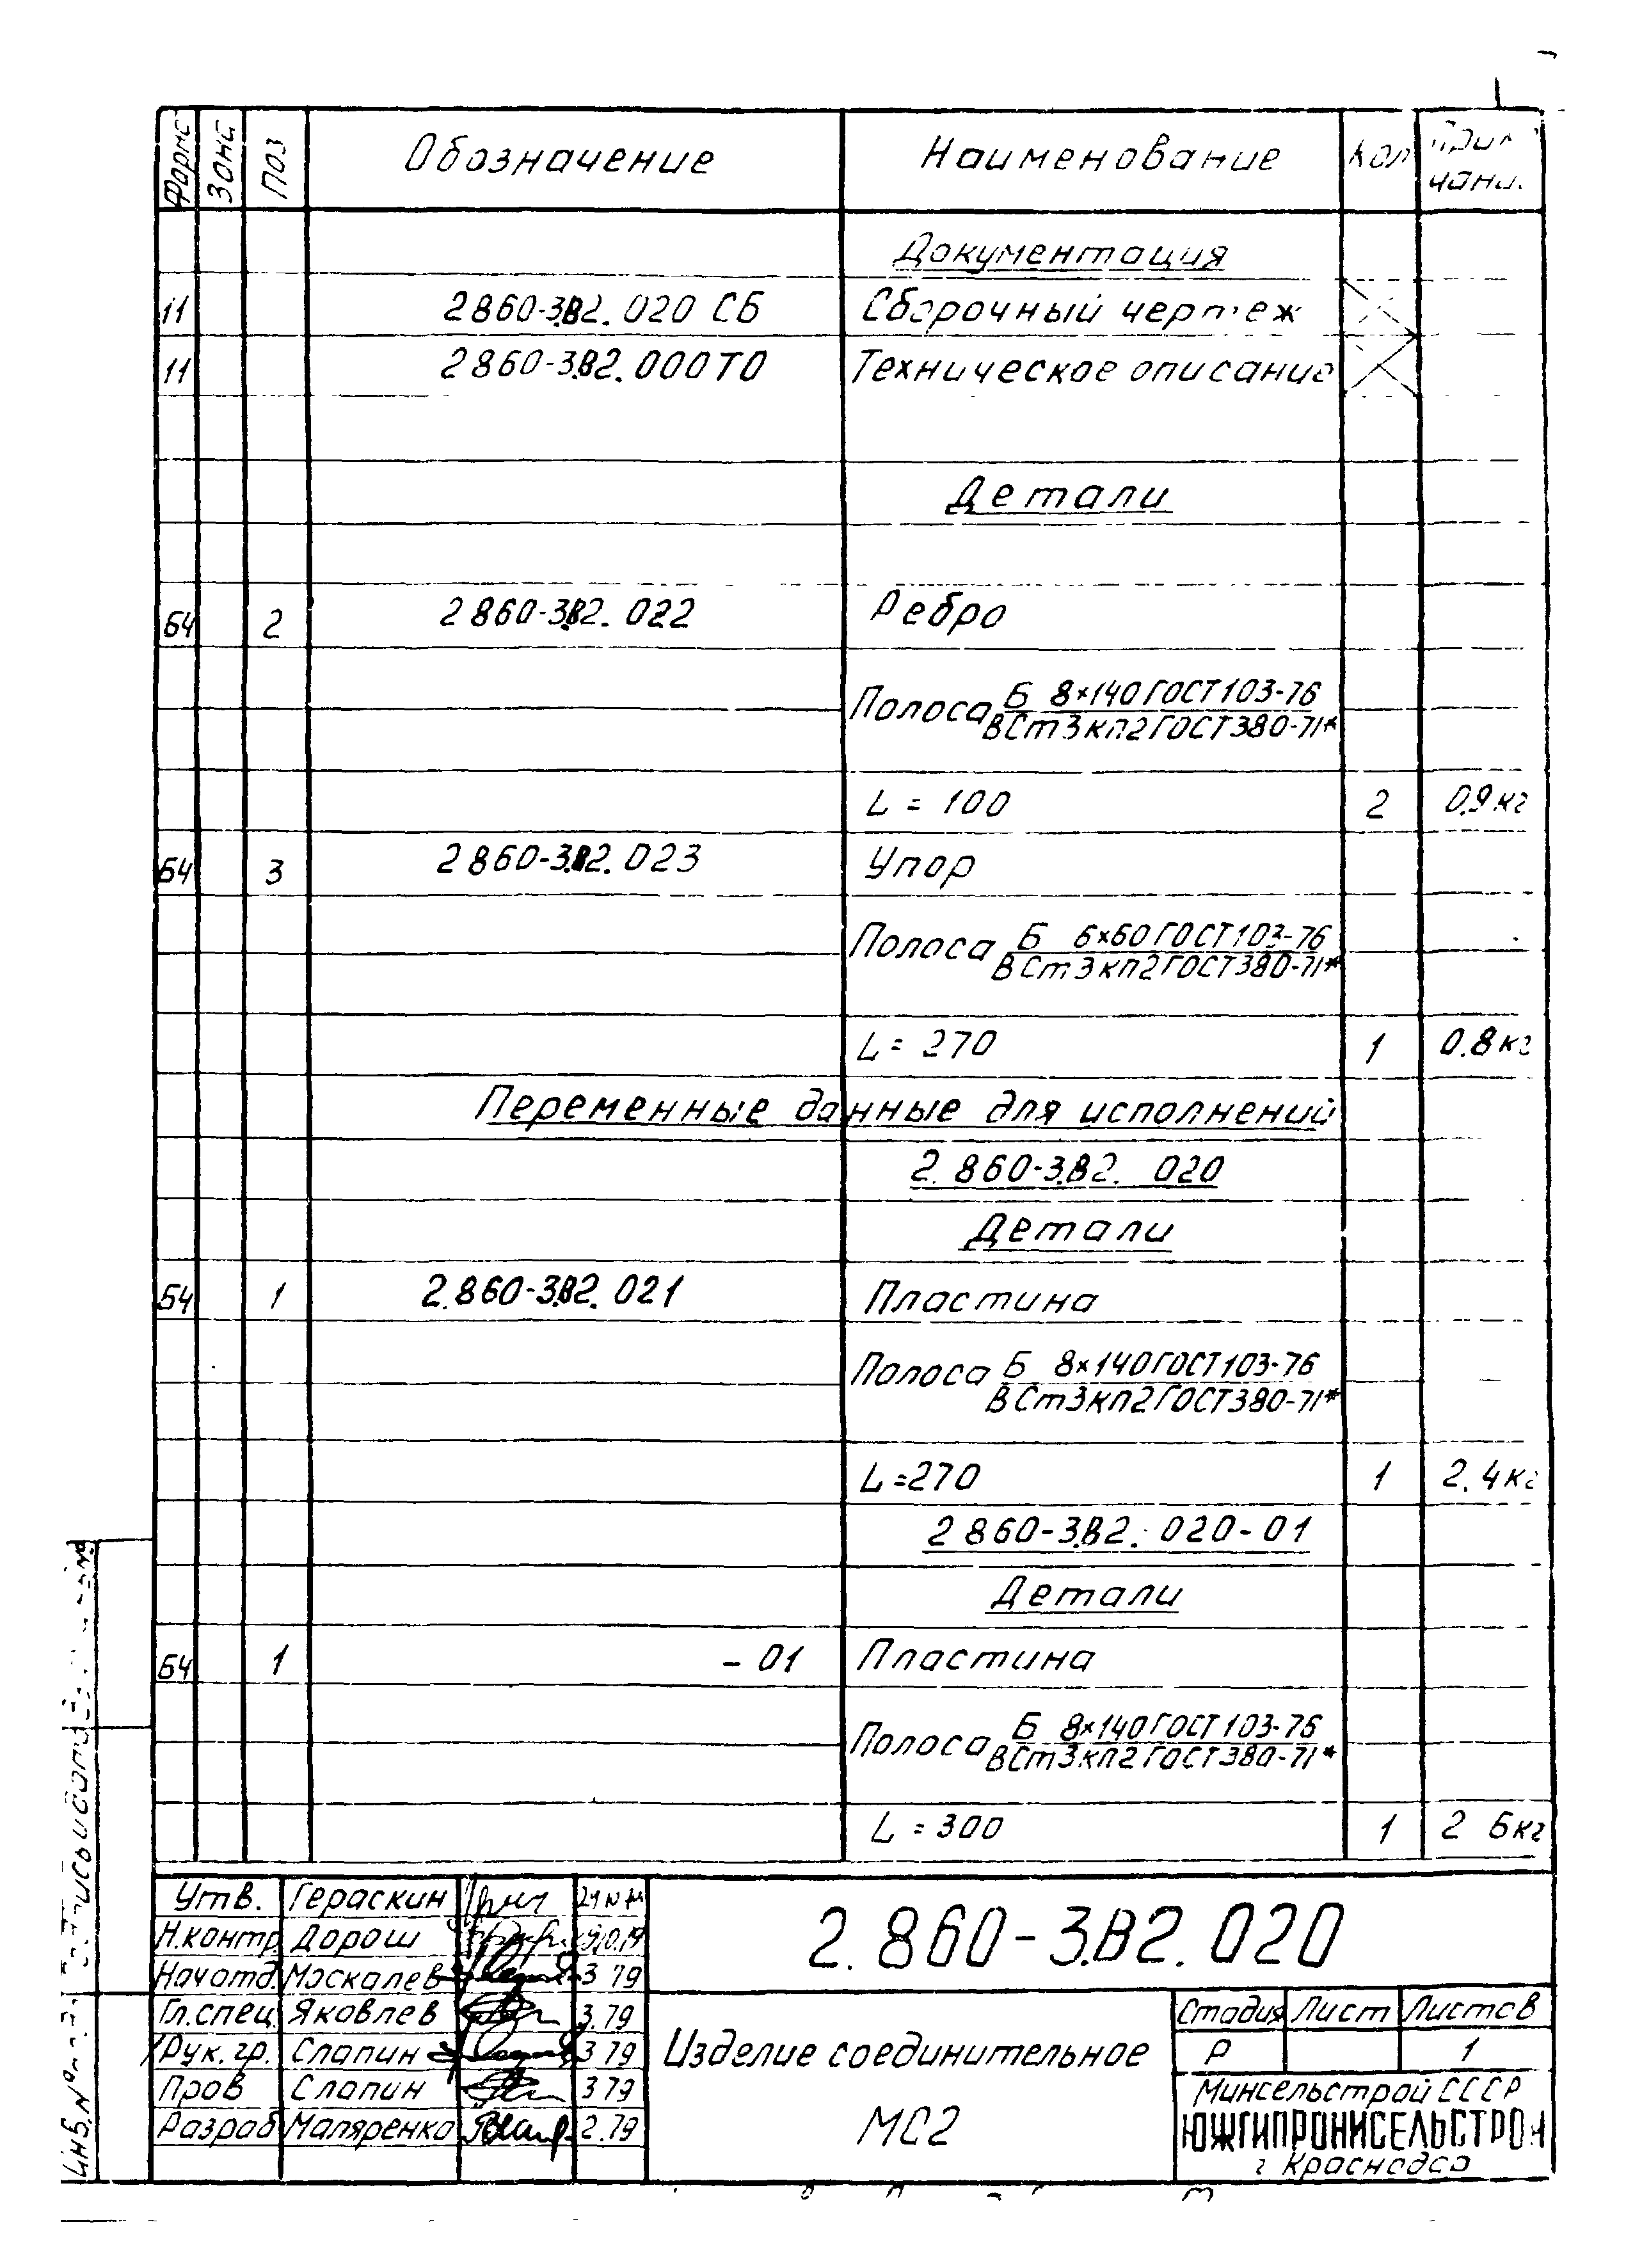 Зона Поз Обозначение Наименование Кол
Документация
11 2 860-3.В2. 020 СБ Сборочный чертеж
11 2 860-3.В2. 000ТО Техническое описание
Детали
БЧ 2 2 860-3.В2. 022 Ребро
Полоса Б 8×140 ГОСТ 103-76
ВСт3кп2 ГОСТ 380-71*
L = 100 2 0,9 кг
БЧ 3 2 860-3.В2. 023 Упор
Полоса Б 6×60 ГОСТ 103-76
ВСт3кп2 ГОСТ 380-71*
L = 270 1 0.8 кг
Переменные данные для исполнений
2. 860-3.В2. 020
Детали
БЧ 1 2.860-3.В2. 021 Пластина
Полоса Б 8×140 ГОСТ 103-76
ВСт3кп2 ГОСТ 380-71*
L=270 1 2.4 кг
2 860-3.В2. 020-01
Детали
БЧ 1 - 01 Пластина
Полоса Б 8×140 ГОСТ 103-76
ВСт3кп2 ГОСТ 380-71*
L = 300 1 2 6 кг
Утв. Гераскин
Н.контр. Дорош
Нач отд. Москалев 3 79
Гл.спец. Яковлев 3.79
Рук. гр. Слапин 3 79
Пров Слапин 3 79
Разраб Маляренко 2.79
2. 860-3.В2. 020
Изделие соединительное
МС2
Стадия Лист Листов
Р 1
Минсельстрой СССР
ЮЖГИПРОНИСЕЛЬСТРОЙ
г Краснодар